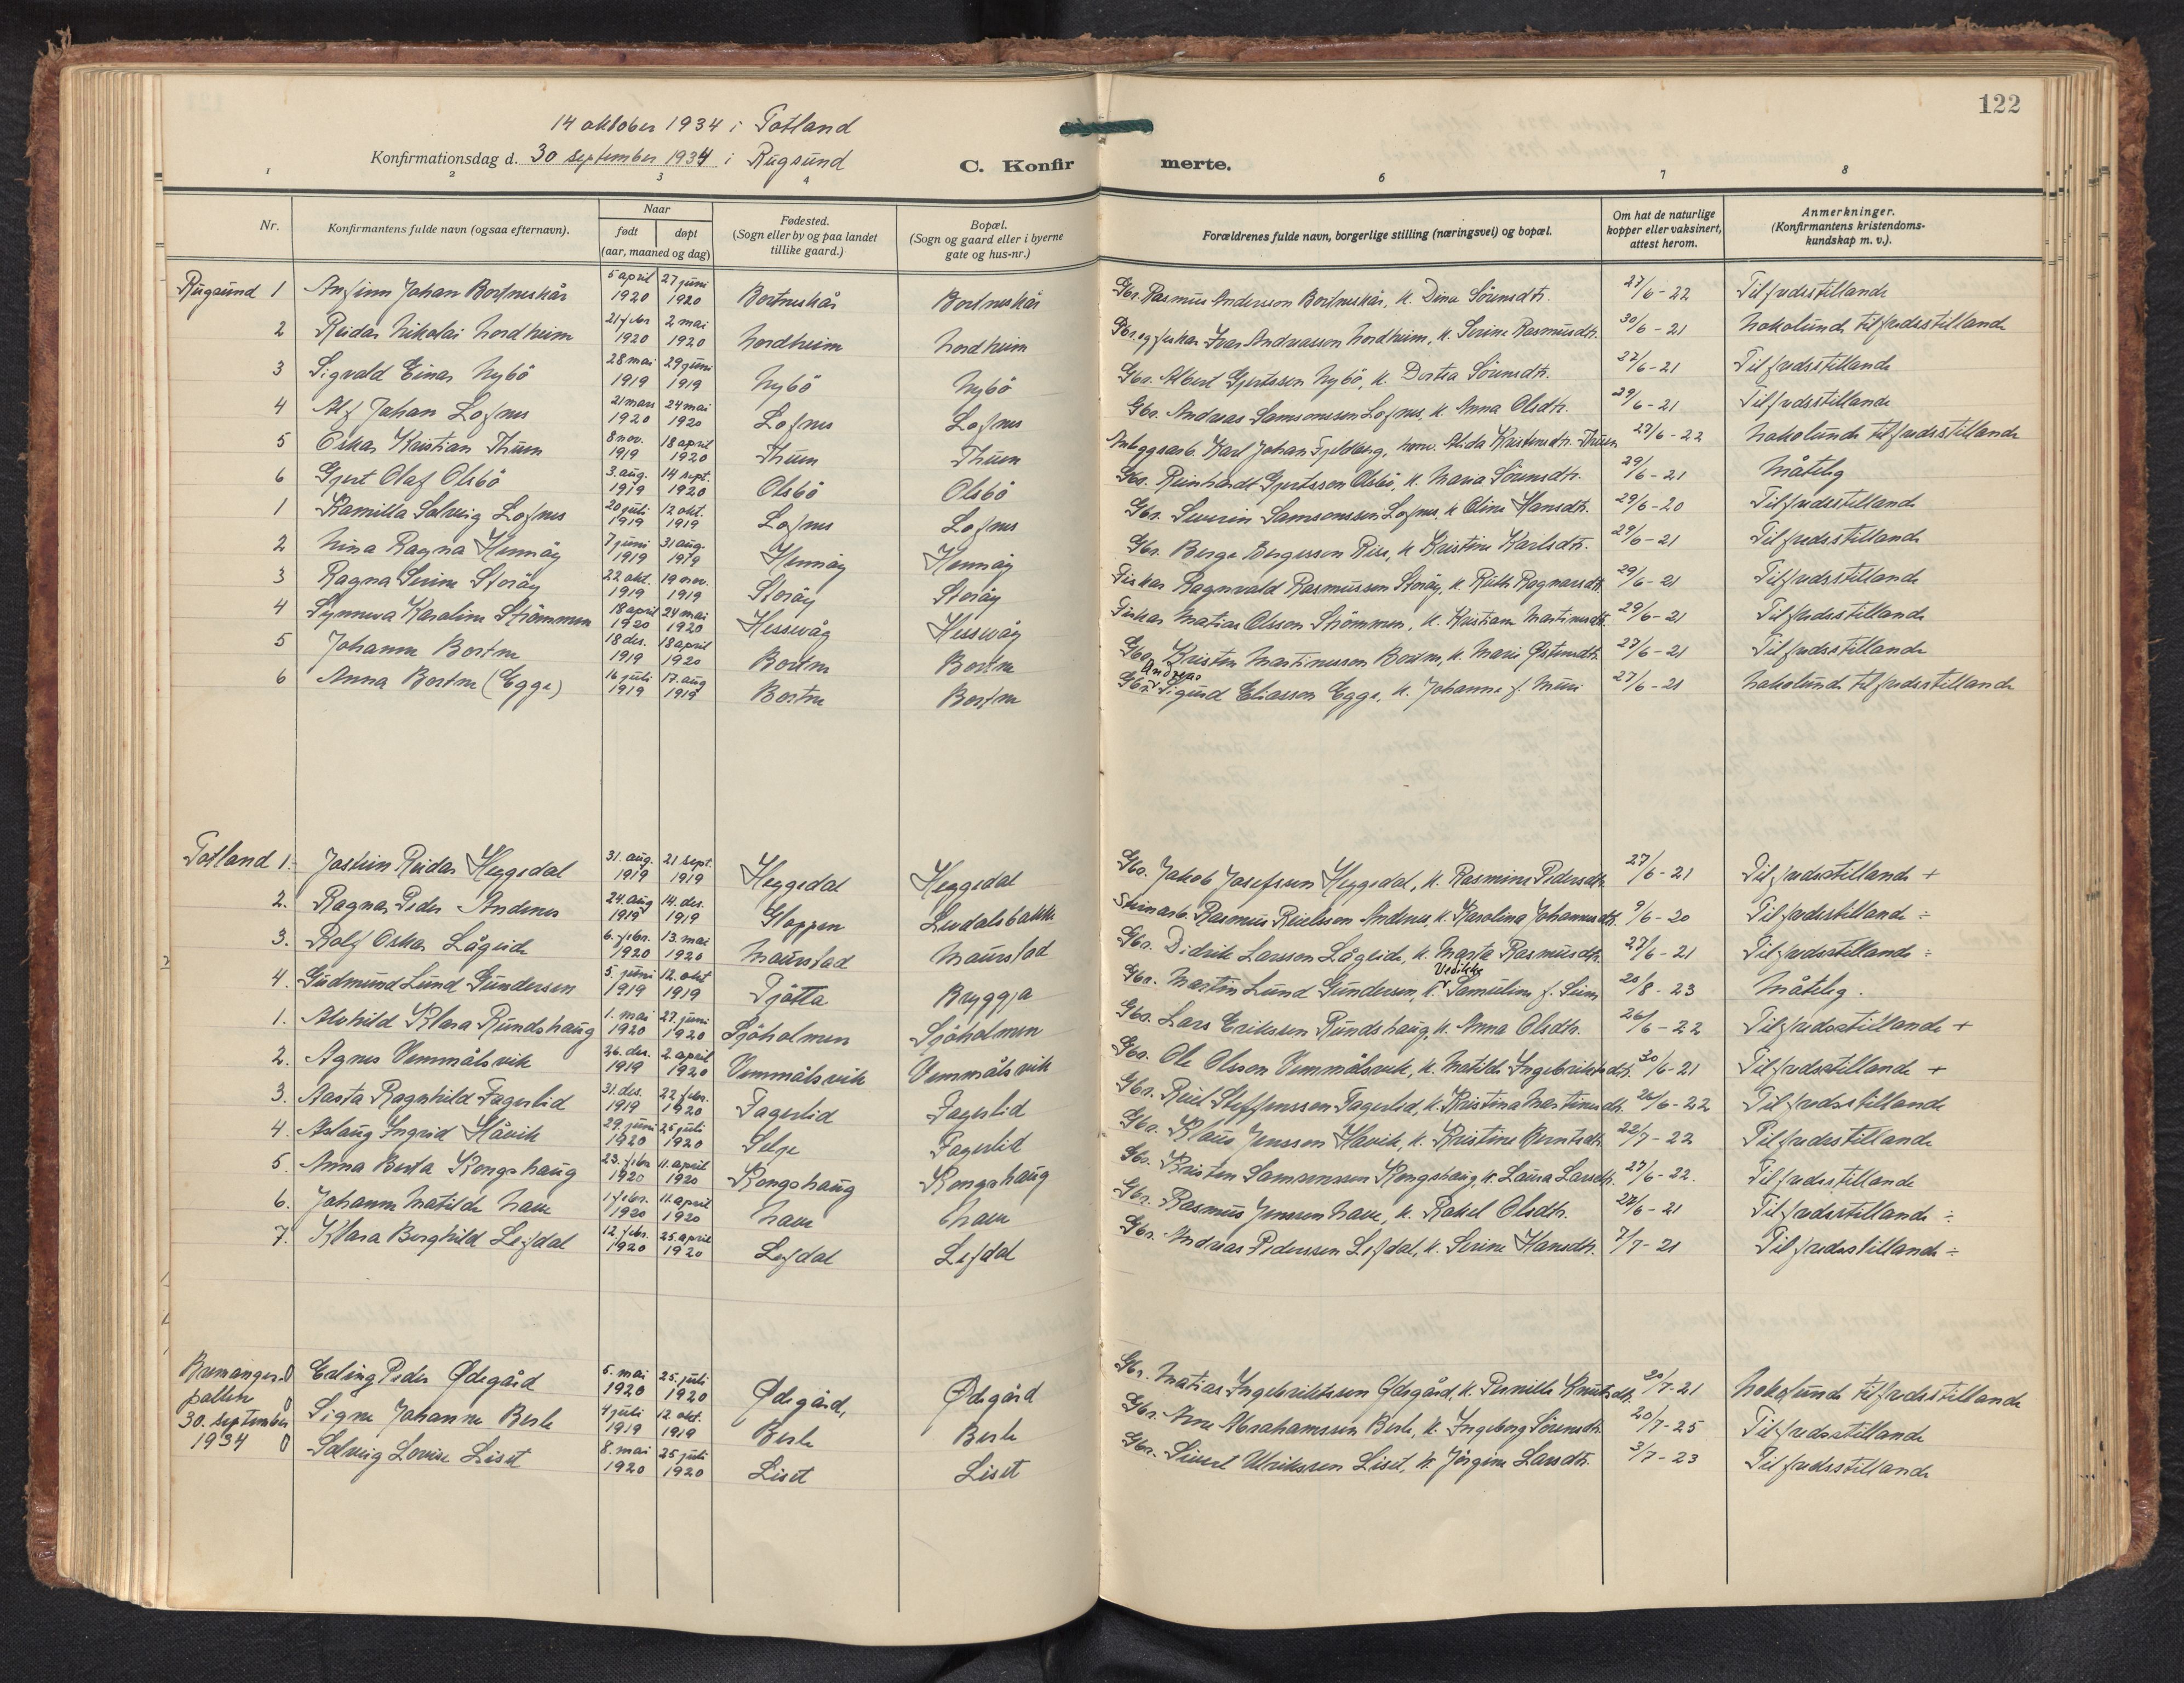 122
14 oktober 1934 i Totland
Konfirmationsdag d. 30 september 1934 i Rugsund C. Konfirmerte.
1 2 3 4 6 7 8
Nr. Konfirmantens fulde navn (ogsaa efternavn). Naar født døpt (aar, maaned og dag) Fødested. (Sogn eller by og paa landet tillike gaard.) Bopæl. (Sogn og gaard eller i byerne gate og hus-nr.) Forældrenes fulde navn, borgerlige stilling (næringsvei) og bopæl. Om hat de naturlige kopper eller vaksinert, attest herom. Anmerkninger. (Konfirmantens kristendomskundskap m. v.).
Rugsund 1 Anfinn Johan Bortneskår 5 april 1920 27 juni 1920 Bortneskår Bortneskår Gbr. Rasmus Andersson Bortneskår, k. Dina Sörensdtr. 27/6-22 Tilfredsstillande
2 Reidar Nikolai Nordheim 21 febr 1920 2 mai 1920 Nordheim Nordheim Gbr. og fiskar Ivar Andreasson Nordheim, k. Serine Rasmusdtr. 30/6-21 Nokolunde tilfredsstillande
3 Sigvald Einar Nybö 28 mai 1919 29 juni 1919 Nybö Nybö Gbr. Albert Gjertssen Nybö, k. Dortea Sörensdtr. 27/6-21 Tilfredsstillande
4 Alf Johan Lofnes 21 mars 1920 24 mai 1920 Lofnes Lofnes Gbr. Andreas Samsonssen Lofnes, k. Anna Olsdtr. 29/6-21 Tilfredsstillande
5 Oskar Kristian Thuen 8 nov. 1919 18 april 1920 Thuen Thuen Anleggsarb. Karl Johan Fjeldberg, Alida Kristensdtr. Thuen 27/6-22 Nokolunde tilfredsstillande
6 Gjert Olaf Olsbö 3. aug. 1919 14 sept. 1920 Olsbö Olsbö Gbr. Reinhardt Gjertsson Olsbö, k. Maria Sörensdtr. 29/6-21 Måteleg
1 Kamilla Solveig Lofnes 20 juli 1919 12 okt. 1919 Lofnes Lofnes Gbr. Severin Samsonssen Lofnes, k. Oline Hansdtr. 29/6-20 Tilfredsstillande
2 Nina Ragna Hennöy 7 juni 1919 31 aug. 1919 Hennöy Hennöy Gbr. Berge Bergesson Rise, k. Kristine Karlsdtr. 29/6-21 Tilfredsstillande
3 Ragna Serine Storöy 22 okt. 1919 19 nov. 1919 Storöy Storöy Fiskar Ragnvald Rasmussen Storöy, k. Ruth Ragnarsdtr. 29/6-21 Tilfredsstillande
4 Synneva Karoline Strömmen 18 april 1920 24 mai 1920 Hessevåg Hessevåg Fiskar Matias Olsson Strömmen, k. Kristiane Martinusdtr. 29/6-21 Tilfredsstillande
5 Johanne Bortne 18 des. 1919 18 april 1920 Bortne Bortne Gbr. Kristen Martinusson Bortne, k. Marie Östensdtr. 27/6-21 Tilfredsstillande
6 Anna Bortne (Egge) 16 juli 1919 17. aug 1919 Bortne Bortne Gbr. Andreas Sigurd Eliasson Egge, k. Johanne f. Muri 27/6-21 Nokolunde tilfredsstillande
Totland 1. Jostein Reidar Heggedal 31. aug. 1919 21 sept. 1919 Heggedal Heggedal Gbr. Jakob Josefssen Heggedal, k. Rasmine Pedersdtr. 27/6-21 Tilfredsstillande +
2. Ragnar Peder Andenes 24. aug 1919 14. des. 1919 Gloppen Levdalsbakke Steinarb. Rasmus Reielsson Andenes, k. Karolina Johannesdtr. 9/6-20 Tilfredsstillande ÷
3. Rolf Oskar Lågeide 6. febr. 1920 13. mai 1920 Maurstad Maurstad Gbr. Didrik Larsson Lågeide, k. Marta Rasmusdtr. 27/6-21 Tilfredsstillande ÷
4. Gudmund Lund Gundersen 5. juni 1919 12. okt 1919 Tjøtta Bryggja Gbr. Martin Lund Gundersen, k. Vedikke Samuline f. Seim 20/8-23 Måteleg.
1. Alvhild Klara Rundshaug 1. mai 1920 27. juni 1920 Sjöholmen Sjöholmen Gbr. Lars Erikssen Rundshaug, k. Anna Olsdtr. 26/6-22 Tilfredsstillande +
2. Agnes Vemmålsvik 26. des. 1919 2 april 1920 Vemmålsvik Vemmålsvik Gbr. Ole Olsson Vemmålsvik, k. Matilde Ingebriktsdtr. 30/6-21 Tilfredsstillande +
3. Aasta Ragnhild Fagerlid 31. des. 1919 22 febr. 1920 Fagerlid Fagerlid Gbr. Reiel Steffenssen Fagerlid, k. Kristina Martinusdtr. 26/6-22 Tilfredsstillande
4. Aslaug Ingrid Håvik 29. juni 1920 25 juli 1920 Selje Fagerlid Gbr. Klaus Jenssen Håvik, k. Kristine Berntsdtr. 22/7-22 Tilfredsstillande
5. Anna Berta Kongshaug 23. febr 1920 11. april 1920 Kongshaug Kongshaug Gbr. Kristen Samsonssen Kongshaug k. Laura Larsdtr. 27/6-22. Tilfredsstillande
6. Johanne Matilde Nave 1 febr. 1920 11. april 1920 Nave Nave Gbr. Rasmus Jenssen Nave, k. Rakel Olsdtr. 28/6-21 Tilfredsstillande ÷
7. Klara Borghild Lefdal 12. febr. 1920 25. april 1920 Lefdal Lefdal Gbr. Andreas Pederssen Lefdal, k. Serine Hansdtr. 7/7-21 Tilfredsstillande ÷
Bremanger-pollen 30. september 1934
0 Erling Peder Ødegård 5. mai 1920 25. juli 1920 Ødegård, Ødegård Gbr. Matias Ingebriktssen Ødegård, k. Pernille Knutsdtr. 20/7-21 Nokolunde tilfredsstillande
0 Signe Johanne Berle 4 juli 1919 12 okt. 1919 Berle Berle Gbr. Arne Abrahamssen Berle, k. Ingeborg Sörensdtr. 20/7-25 Tilfredsstillande
0 Solveig Lovise Liset 8. mai 1920 25 juli 1920 Liset Liset Gbr. Sivert Ulrikssen Liset, k. Jörgine Larsdtr. 3/7-23 Tilfredsstillande